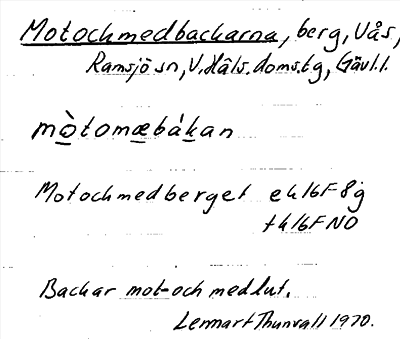 Motochmedbackarna, berg, V.ås,
Ramsjö sn, V.Häls.doms.tg, Gävl.l.
mòtomæbákan
Motochmedberget ek16F8g
tk16FNO
Backar mot- och medlut.
Lennart Thunvall 1970.